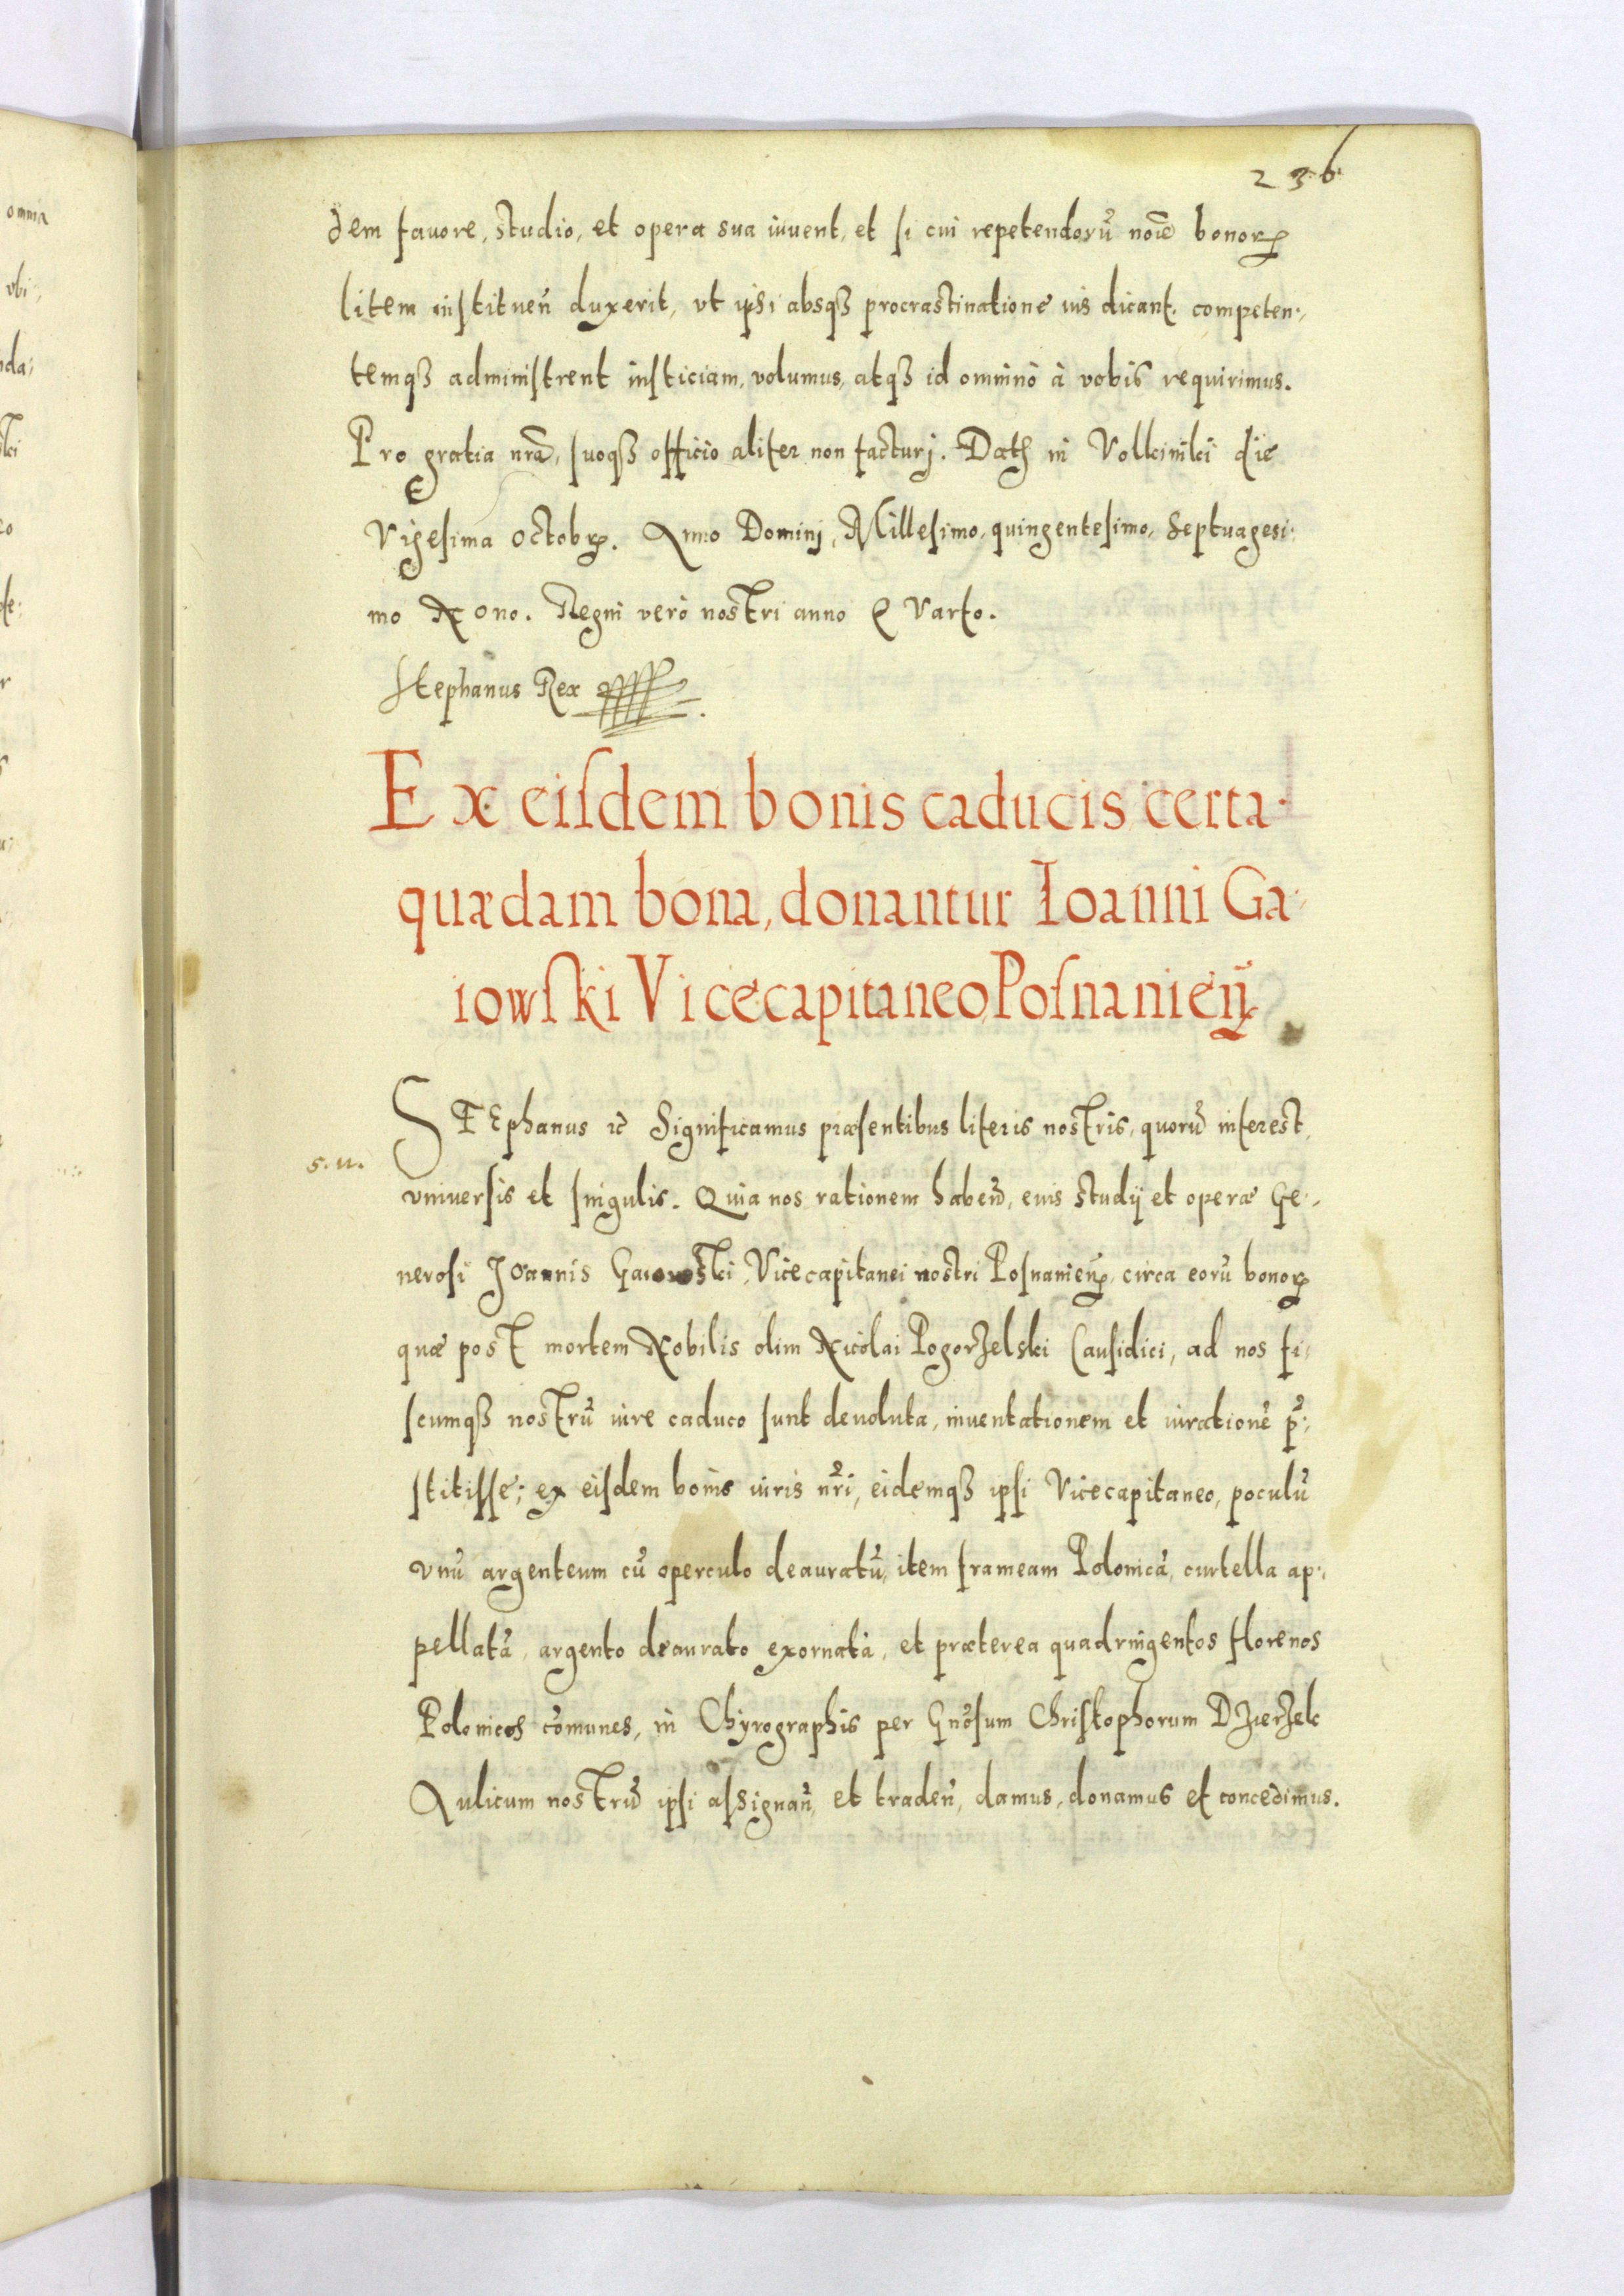 236
dem fauore, studio, et opera sua iuuent, et si cui repetendorũ noĩe bonorꝝ
litem instituen̄ duxerit, vt ipsi absqꝫ procrastinatione ius dicant. competen-
temqꝫ administrent iusticiam, volumus, atqꝫ id omninò à vobis requirimus.
Pro gratia nrã, suoqꝫ officio aliter non facturj. Datꝭ in Volkiniki die
Vigesima octobrꝭ. Anno Dominj, Millesimo, quingentesimo, Septuagesi-
mo Nono. Regni verò nostri anno Quarto.
Stephanus Rex
Ex eiſdem bonis caducis certa
quædam bona, donantur Ioanni Ga-
iowſki Vicecapitaneo Poſnanien̄
s. n.
STEphanus ꝛc̃ Significamus præsentibus literis nostris, quorũ interest,
vniuersis et singulis. Quia nos rationem haben̄, eius studij et operæ Ge-
nerosi Joannis Gaiowski, Vicecapitanei nostri Posnanien̄, circa eorũ bonorꝝ
quæ post mortem Nobilis olim Nicolai Pogorzelski Causidici, ad nos fi-
scumqꝫ nostrũ iure caduco sunt deuoluta, inuentationem et iurationẽ p̃-
stitisse; ex eisdem bonis iuris nr̃i, eidemqꝫ ipsi Vicecapitaneo, poculũ
vnũ argenteum cũ operculo deauratũ, item frameam Polonicã, curtella ap-
pellatã, argento deaurato exornatã, et præterea quadringentos florenos
Polonicos cõmunes, in Chyrographis per Gnõsum Christophorum Dzierzek
Aulicum nostrũ ipsi assignan̄, et traden̄, damus, donamus et concedimus.